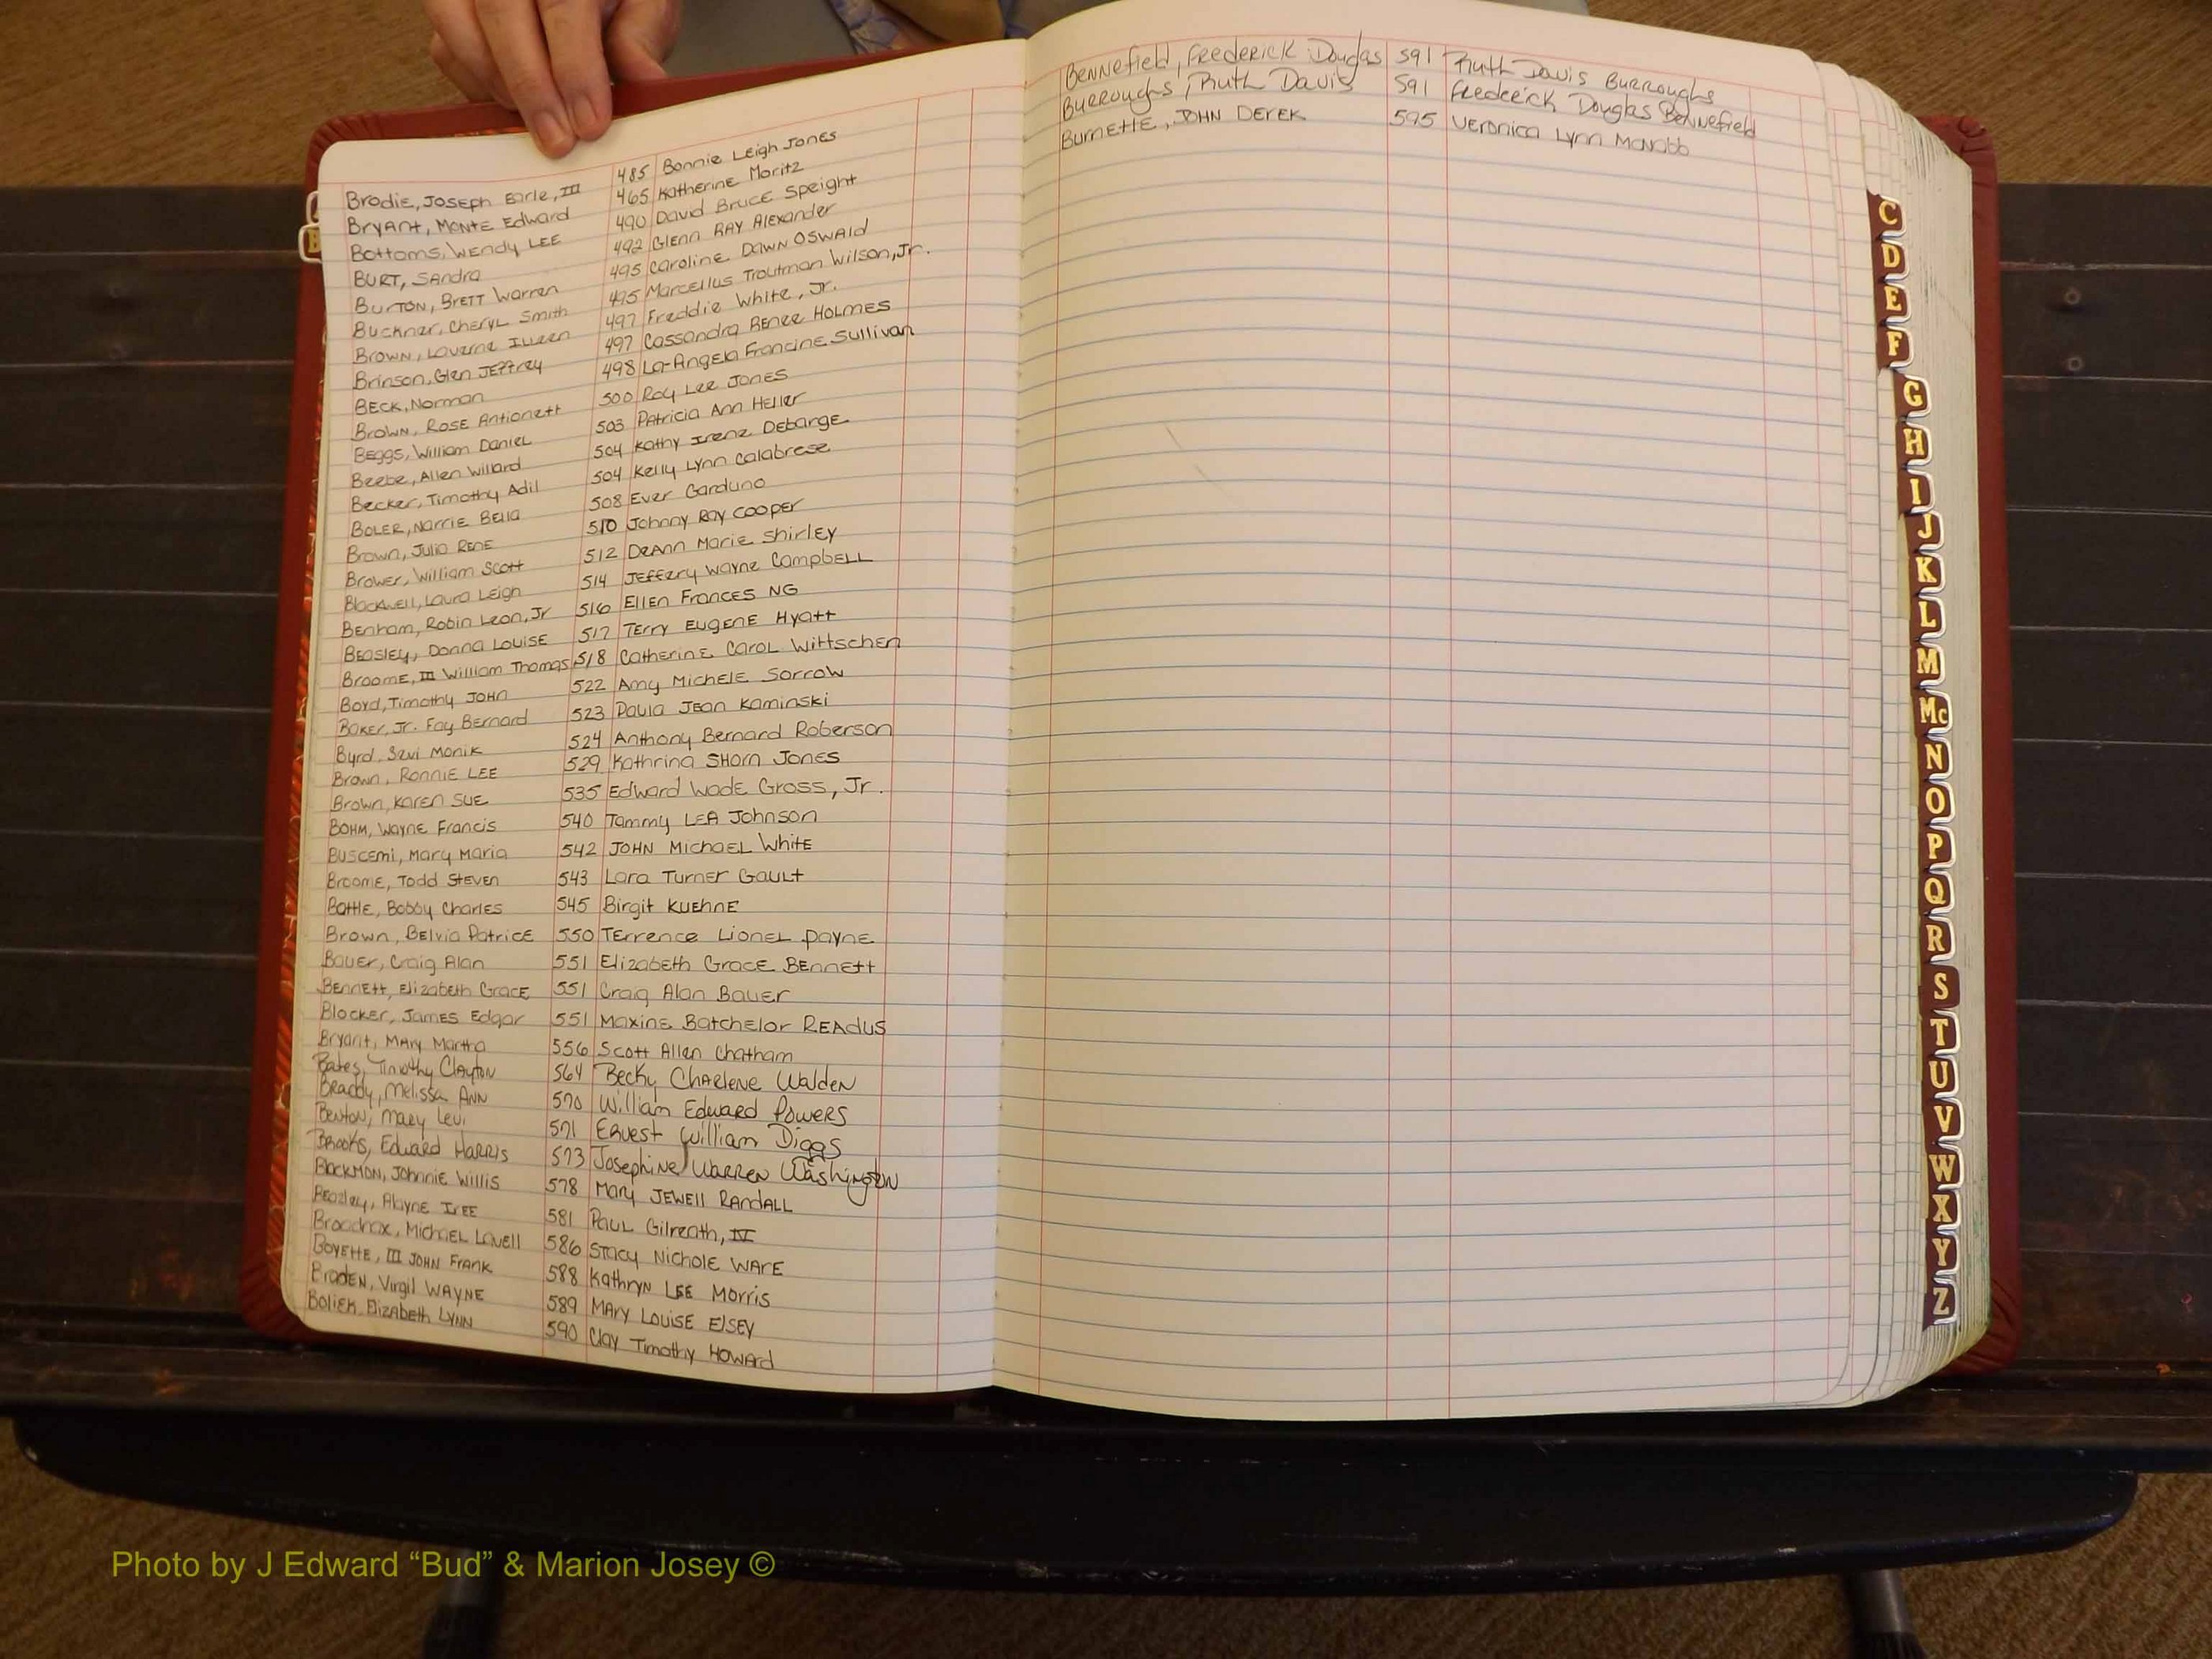 Brodie, Joseph Earle, III 485 Bonnie Leigh Jones
Bryant, Monte Edward 465 Katherine Moritz
Bottoms, Wendy Lee 490 David Bruce Speight
Burt, Sandra 492 Glenn Ray Alexander
Burton, Brett Warren 495 Caroline Dawn Oswald
Buckner, Cheryl Smith 495 Marcellus Troutman Wilson, Jr.
Brown, Laverne 497 Freddie White, Jr.
Brinson, Glen Jeffrey 497 Cassandra Renee Holmes
Beck, Norman 498 La-Angela Francine Sullivan
Brown, Rose Antionett 500 Roy Lee Jones
Beggs, William Daniel 503 Patricia Ann Heller
Beebe, Allen Willard 504 Kathy Irene Debarge
Becker, Timothy Adil 504 Kelly Lynn Calabrese
Boler, Narrie Bella 508 Ever Garduno
Brown, Julia Rene 510 Johnny Ray Cooper
Brower, William Scott 512 DeAnn Marie Shirley
Blackwell, Laura Leigh 514 Jeffery Wayne Campbell
Benham, Robin Leon, Jr 516 Ellen Frances NG
Beasley, Donna Louise 517 Terry Eugene Hyatt
Broome, III William Thomas 518 Catherine Carol Wittschen
Boyd, Timothy John 522 Amy Michele Sorrow
Baker, Jr. Fay Bernard 523 Paula Jean Kaminski
Byrd, Sevi Monik 524 Anthony Bernard Roberson
Brown, Ronnie Lee 529 Kathrina Shorn Jones
Brown, Karen Sue 535 Edward Wade Gross, Jr.
Bohm, Wayne Francis 540 Tammy Lea Johnson
Buscemi, Mary Maria 542 John Michael White
Broome, Todd Steven 543 Lara Turner Gault
Bottle, Bobby Charles 545 Birgit Kuehne
Brown, Belvia Patrice 550 Terrence Lionel Payne
Bauer, Craig Alan 551 Elizabeth Grace Bennett
Bennett, Elizabeth Grace 551 Craig Alan Bauer
Blocker, James Edgar 551 Maxine Batchelor Readus
Bryant, Mary Martha 556 Scott Allen Chatham
Bates, Timothy Clayton 564 Becky Charlene Walden
Braddy, Melissa Ann 570 William Edward Powers
Benton, Mary Levi 571 Ernest William Diggs
Brooks, Edward Harris 573 Josephine Warren Washington
Blackmon, Johnnie Willis 578 Mary Jewell Randall
Beazley, Alayne Iree 581 Paul Gilreath, IV
Broadnax, Michael Lavell 586 Stacy Nichole Ware
Boyette, III John Frank 588 Kathryn Lee Morris
Braden, Virgil Wayne 589 Mary Louise Elsey
Boliek, Elizabeth Lynn 590 Clay Timothy Howard
Bennefield, Frederick Douglas 591 Ruth Davis Burroughs
Burroughs, Ruth Davis 591 Frederick Douglas Bennefield
Burnette, John Derek 595 Veronica Lynn McNabb
C
D
E
F
G
H
I
J
K
L
M
Mc
N
O
P
Q
R
S
T
U
V
W
X
Y
Z
Photo by J Edward “Bud” & Marion Josey ©